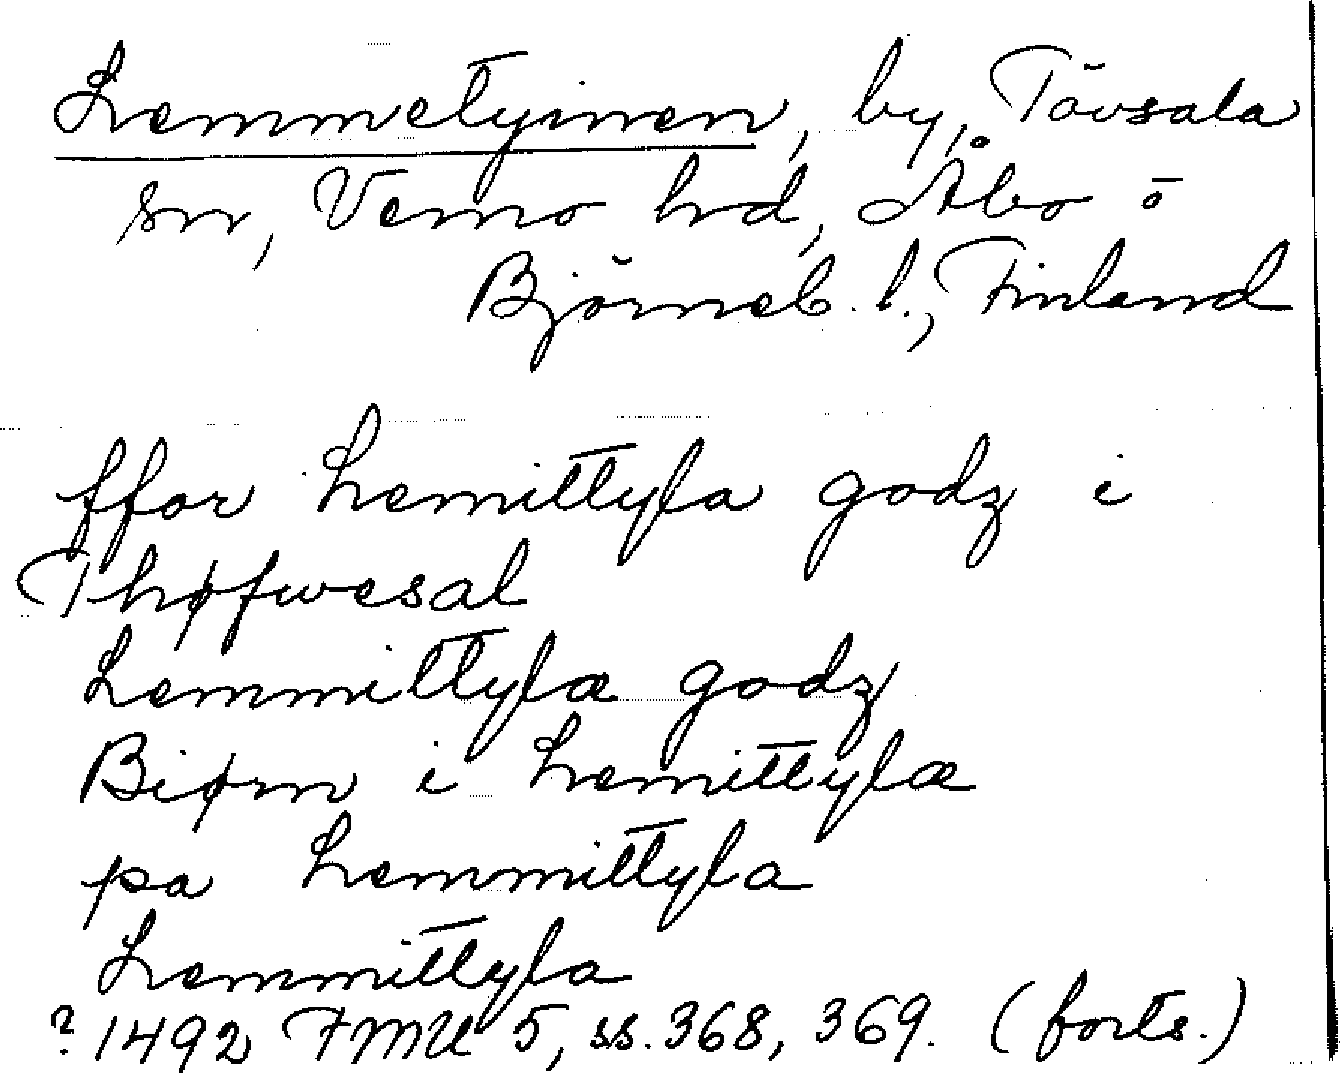 Lemmetyinen, by, Tövsala
sn, Vemo hd, Åbo o
Björneb. l., Finland
ffor Lemittyla godz i
Thøfwesal
Lemmittylæ godz
Biørn i Lemittylæ
pa Lemmittyla
Lemmittyla
? 1492 FMU 5, ss. 368, 369. (forts.)